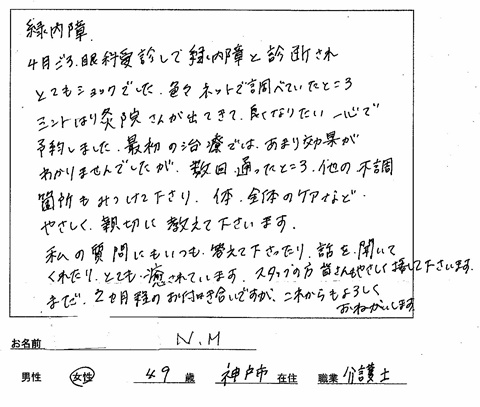 緑内障
4月ごろ.眼科受診して緑内障と診断され
とてもショックでした.色々ネットで調べていたところ
ミントはり灸院さんが出てきて.良くなりたい一心で
予約しました.最初の治療では.あまり効果が
わかりませんでしたが.数回通ったところ.他の不調
箇所もみつけて下さり.体.全体のケアなど.
やさしく.親切に教えて下さいます.
私の質問にもいつも.答えて下さったり.話を聞いて
くれたり.とても.癒されています.スタッフの方皆さんもやさしく接して下さいます.
まだ.2ヵ月程のお付き合いですが.これからもよろしく
おねがいします
お名前 N.M
男性 女性 49 歳 神戸市 在住 職業 介護士